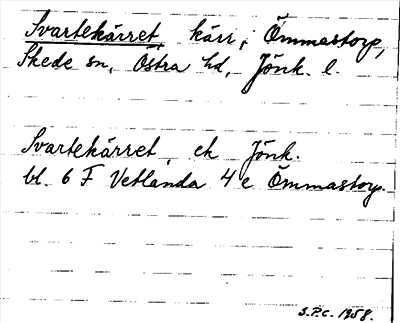 Svartekärret, kärr, Ömmastorp,
Skede sn, Östra hd, Jönk. l.
Svartekärret, ek Jönk.
bl. 6 F Vetlanda 4 e Ömmastorp.
S.P.C. 1958.